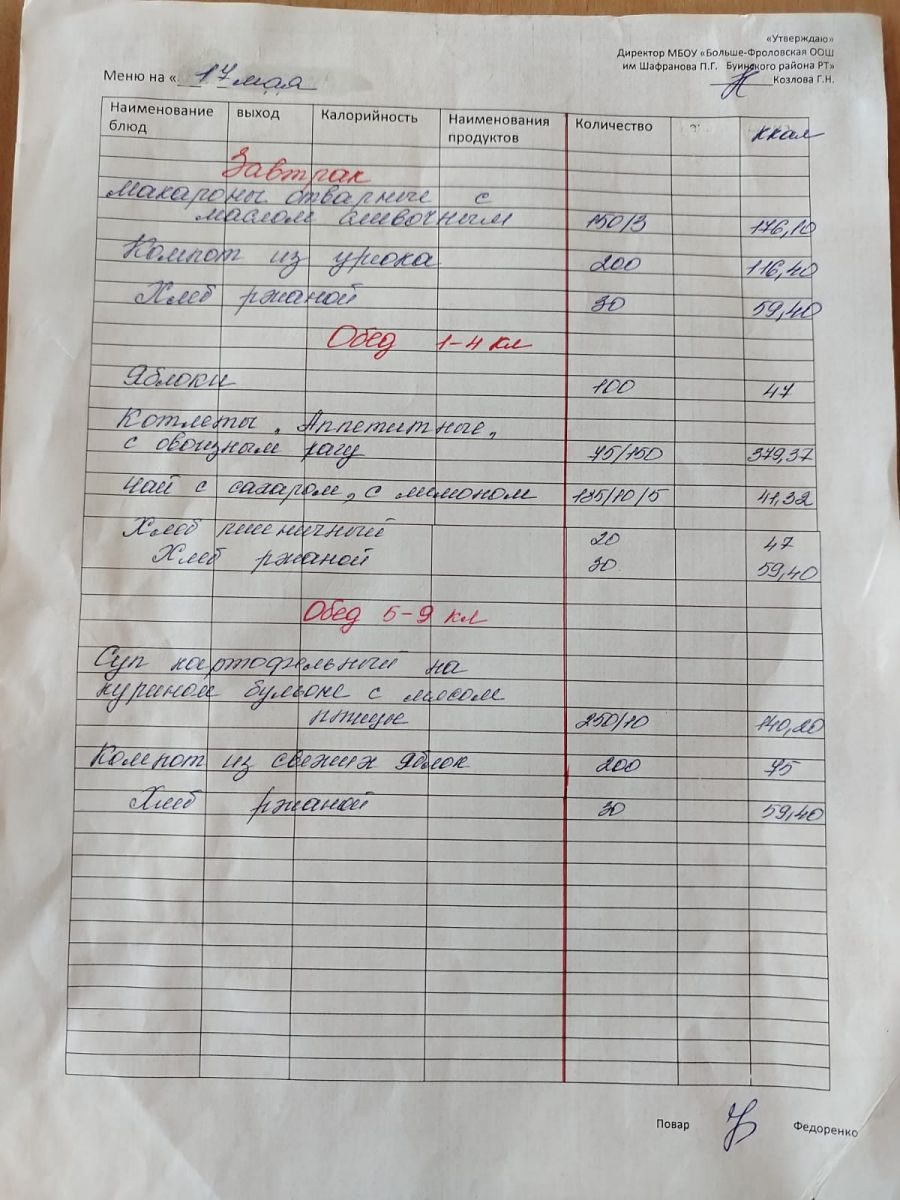 «Утверждаю»
Директор МБОУ «Больше-Фроловская ООШ
им Шафранова П.Г. Буинского района РТ»
Козлова Г.Н.
Меню на « 17 мая
Наименование блюд выход Калорийность Наименования продуктов Количество ккал
Завтрак
Макароны отварные с
маслом сливочным 150/3 176,10
Компот из урюка 200 116,40
Хлеб ржаной 30 59,40
Обед 1-4 кл
Яблоки 100 47
Котлеты „Аппетитные„
с овощным рагу 75/150 379,37
Чай с сахаром, с лимоном 185/10/5 41,32
Хлеб пшеничный 20 47
Хлеб ржаной 30 59,40
Обед 5-9 кл
Суп картофельный на
курином бульоне с мясом
птицы 250/10 140,20
Компот из свежих яблок 200 75
Хлеб ржаной 30 59,40
Повар Федоренко